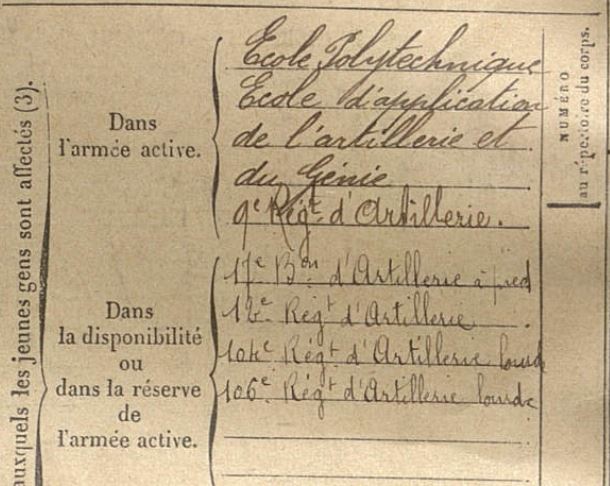 auxquels les jeunes gens sont affectés (3).
Dans
l'armée active.
Ecole Polytechnique
Ecole d'application
de l'artillerie et
du Génie
9e Régt d'Artillerie.
Dans
la disponibilité
ou
dans la réserve
de
l'armée active.
17e Bon d'Artillerie à pied
12e Régt d'Artillerie
104e Régt d'Artillerie lourde
106e Régt d'Artillerie lourde
NUMÉRO
au répertoire du corps.